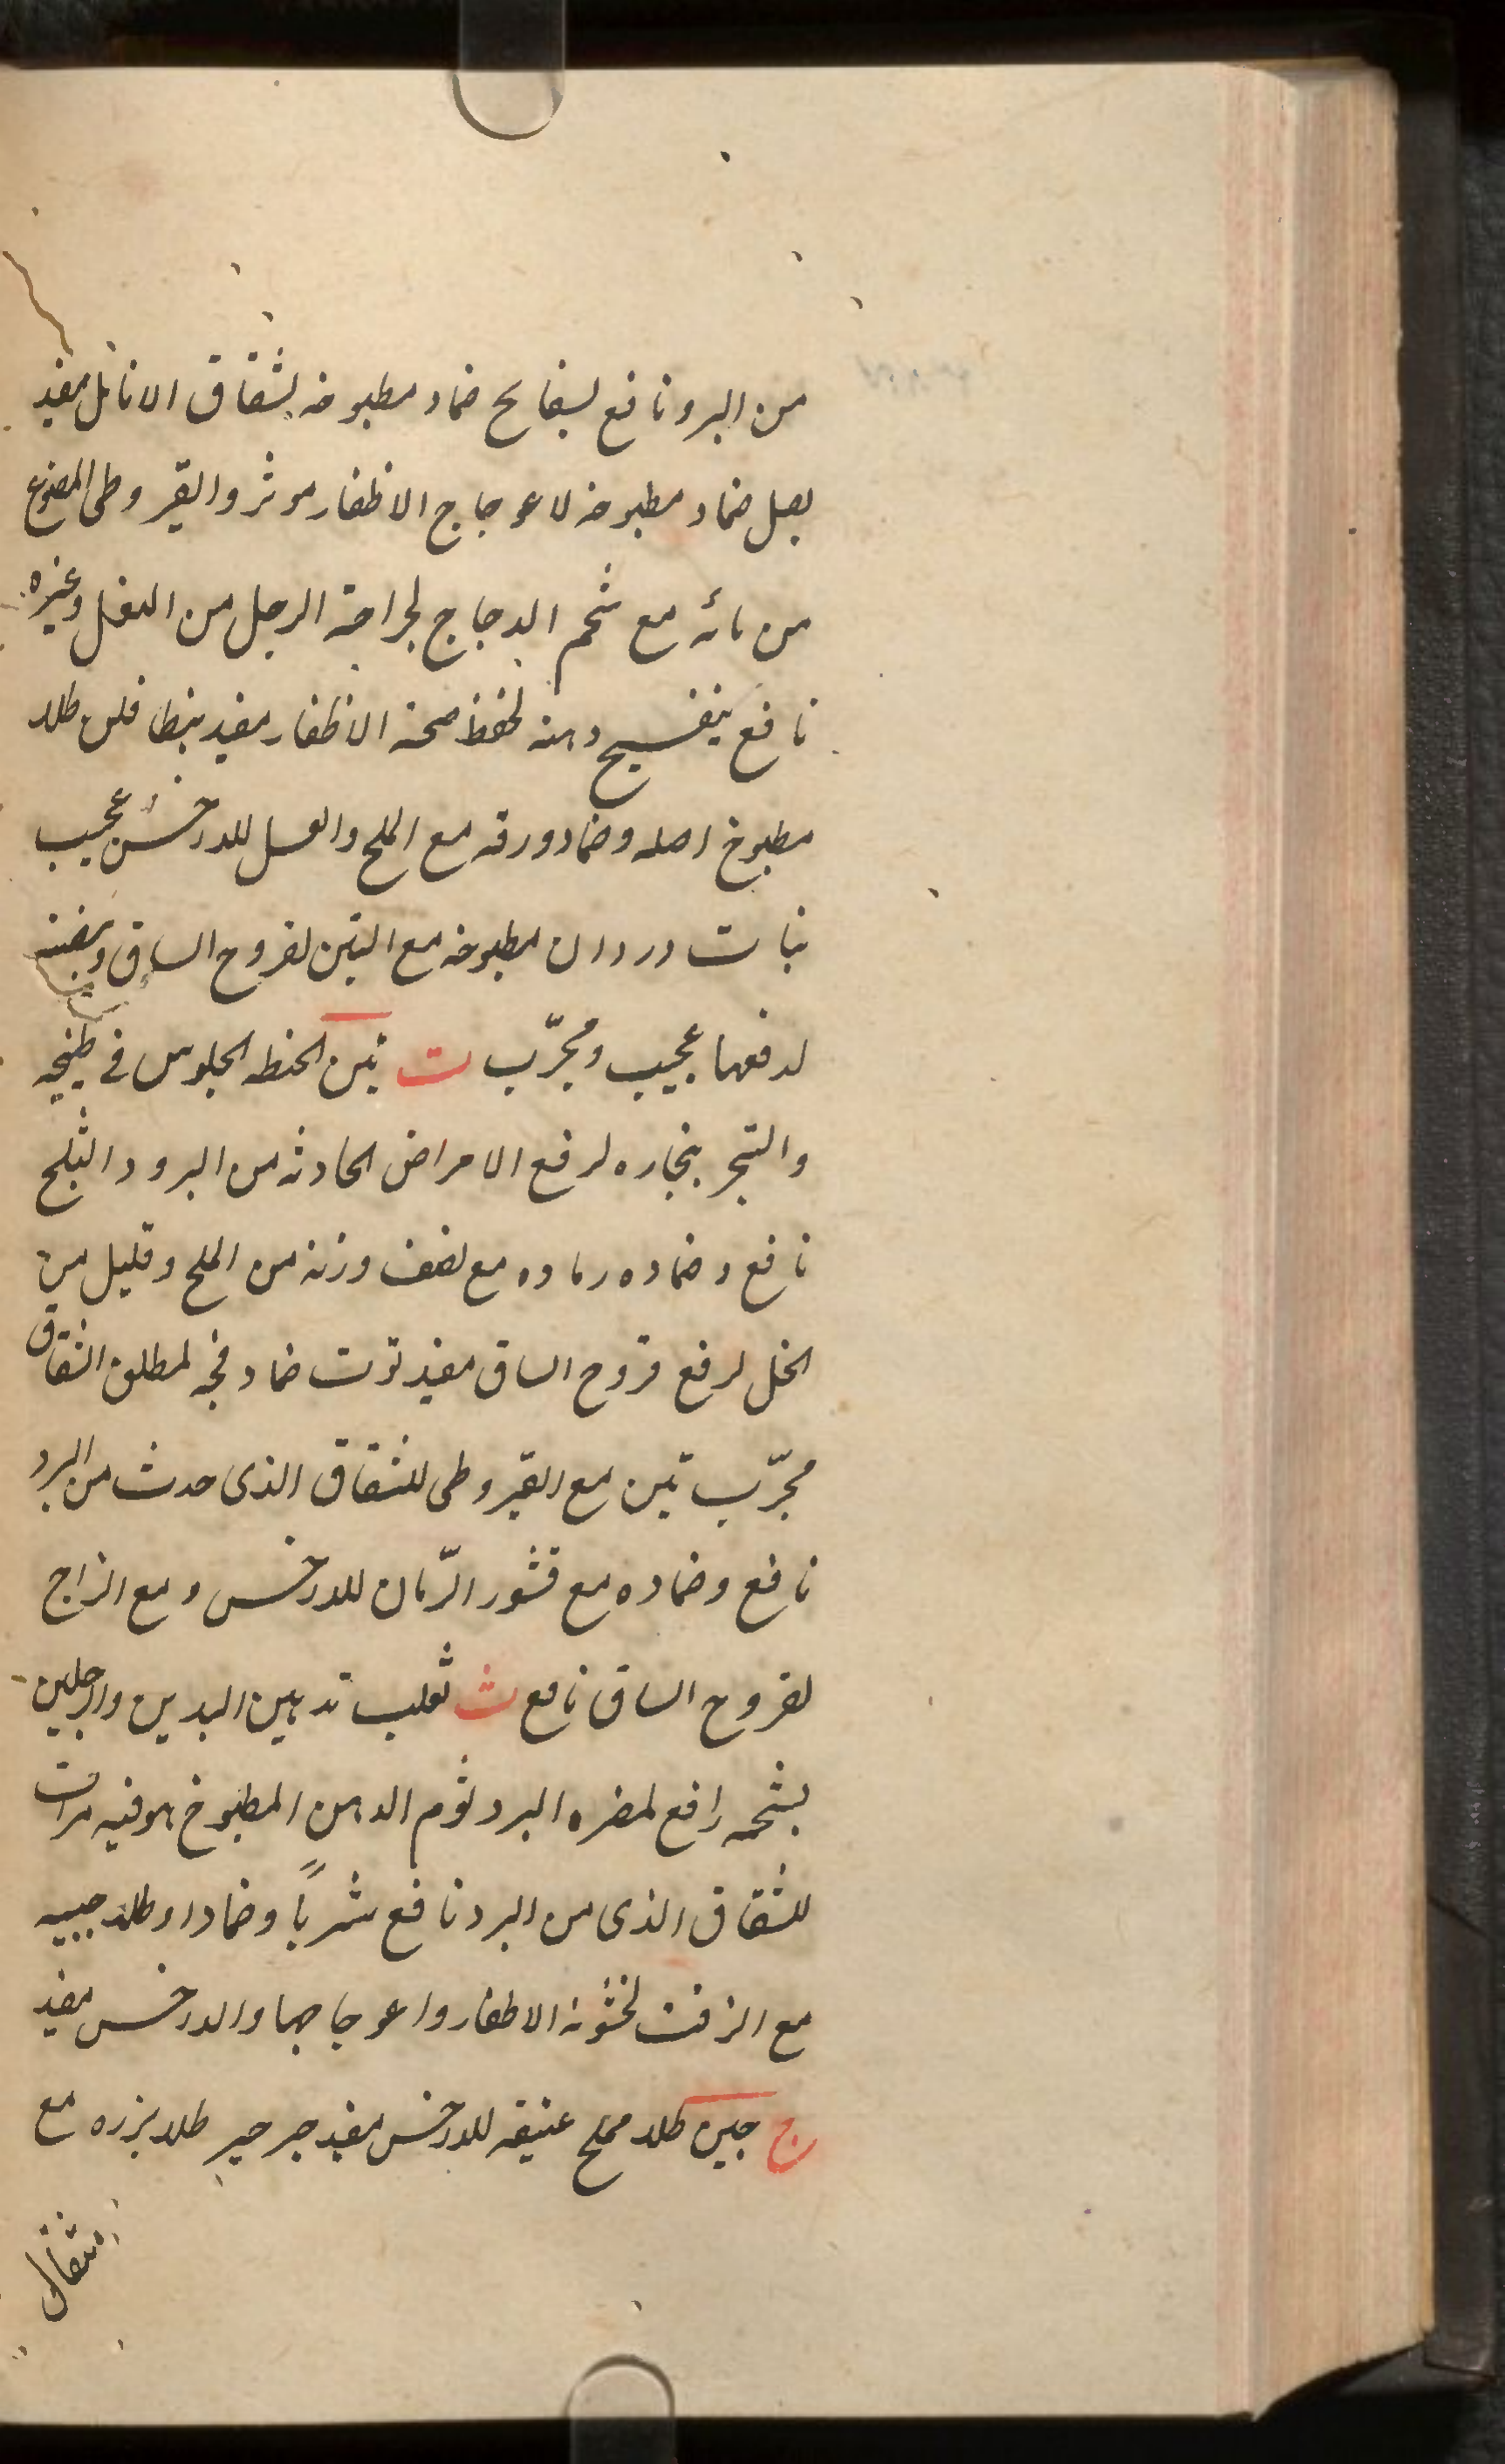 من البرد نافع بسفايح ضماد مطبوخه لشقاق الانامل مفيد
بصل ضماد مطبوخه لاعوجاج الاظفار موثر والقيروطى المصنوع
من مائه مع شحم الدجاج لجراحة الرجل من النعل وغيره
نافع بنفسج دهنه لحفظ صحة الاظفار مفيد بنطافلن طلاء
مطبوخ اصله وضماد ورقه مع الملح والعسل للداخس عجيب
بنات وردان مطبوخه مع التين لقروح الساق
لدفعها عجيب ومجرّب ت تبن الحنطه الجلوس فى طبيخه
والتبخر ببخاره لرفع الامراض الحادثه من البرد والثلج
نافع وضماده رماده مع نصف وزنه من الملح وقليل من
الخل لرفع قروح الساق مفيد توت ضماد فجه لمطلق الشقاق
مجرّب تين مع القيروطى للشقاق الذى حدث من البرد
نافع وضماده مع قشور الرّمان للداخس ومع الزاج
لقروح الساق نافع ث ثعلب تدهين اليدين والرجلين
بشحمه رافع لمضره البرد ثوم الدهن المطبوخ هو فيه مرات
للشقاق الذى من البرد نافع شرباً وضمادا وطلاء حبيه
مع الزفت لخشونه الاظفار واعوجاجها والداخس مفيد
ج جبن طلاء مملح عتيقه للداخس مفيد جرجير طلاء بزره مع